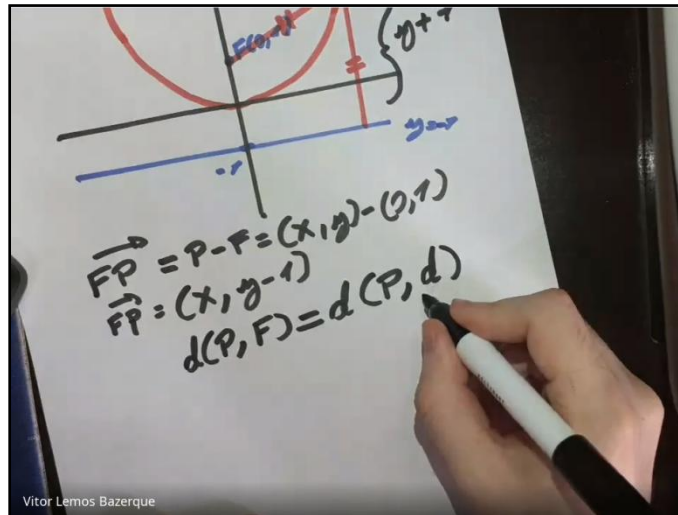 F(0,1)
y+1
y=-1
-1
FP = P-F = (x,y)-(0,1)
FP = (x, y-1)
d(P,F) = d(P,d)
Vitor Lemos Bazerque